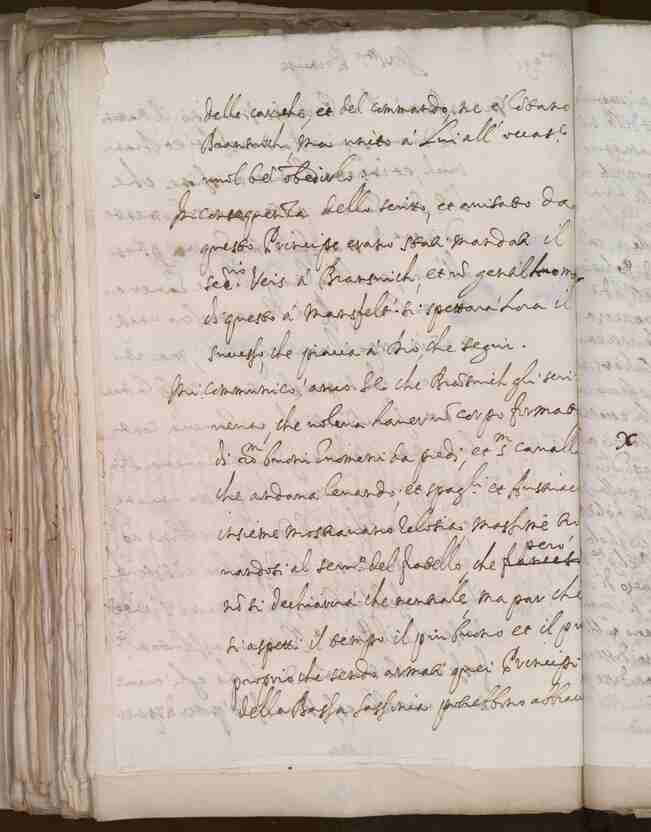 delle cariche, et del commando, ne è lontano
Bransuich, ma unito á Lui all' occas.e
vuol obedirlo.
In conseguenza dello scritto, et avisato da
questo Principe erano stati mandati il
seg.rio Veis á Bransuich, et un gentilhuomo
di questo á Mansfelt. si spettará hora il
successo, che piacia á Dio che segua.
Mi communicó anco S.E. che Bransuich gli scri
veva, che voleva haver un corpo formato
di buoni huomeni da piedi, et cavalli
che andava levando, et Spag.li et
insieme mostravano gelosia, massime tro
vandosi al serv.o del fratello che però
non si dechiarirá che neutrale, ma par che
si aspetti il tempo il piu buono et il piu
proprio che sendo armati quei Principi
della Bassa Sassonia potrebbono abbrac